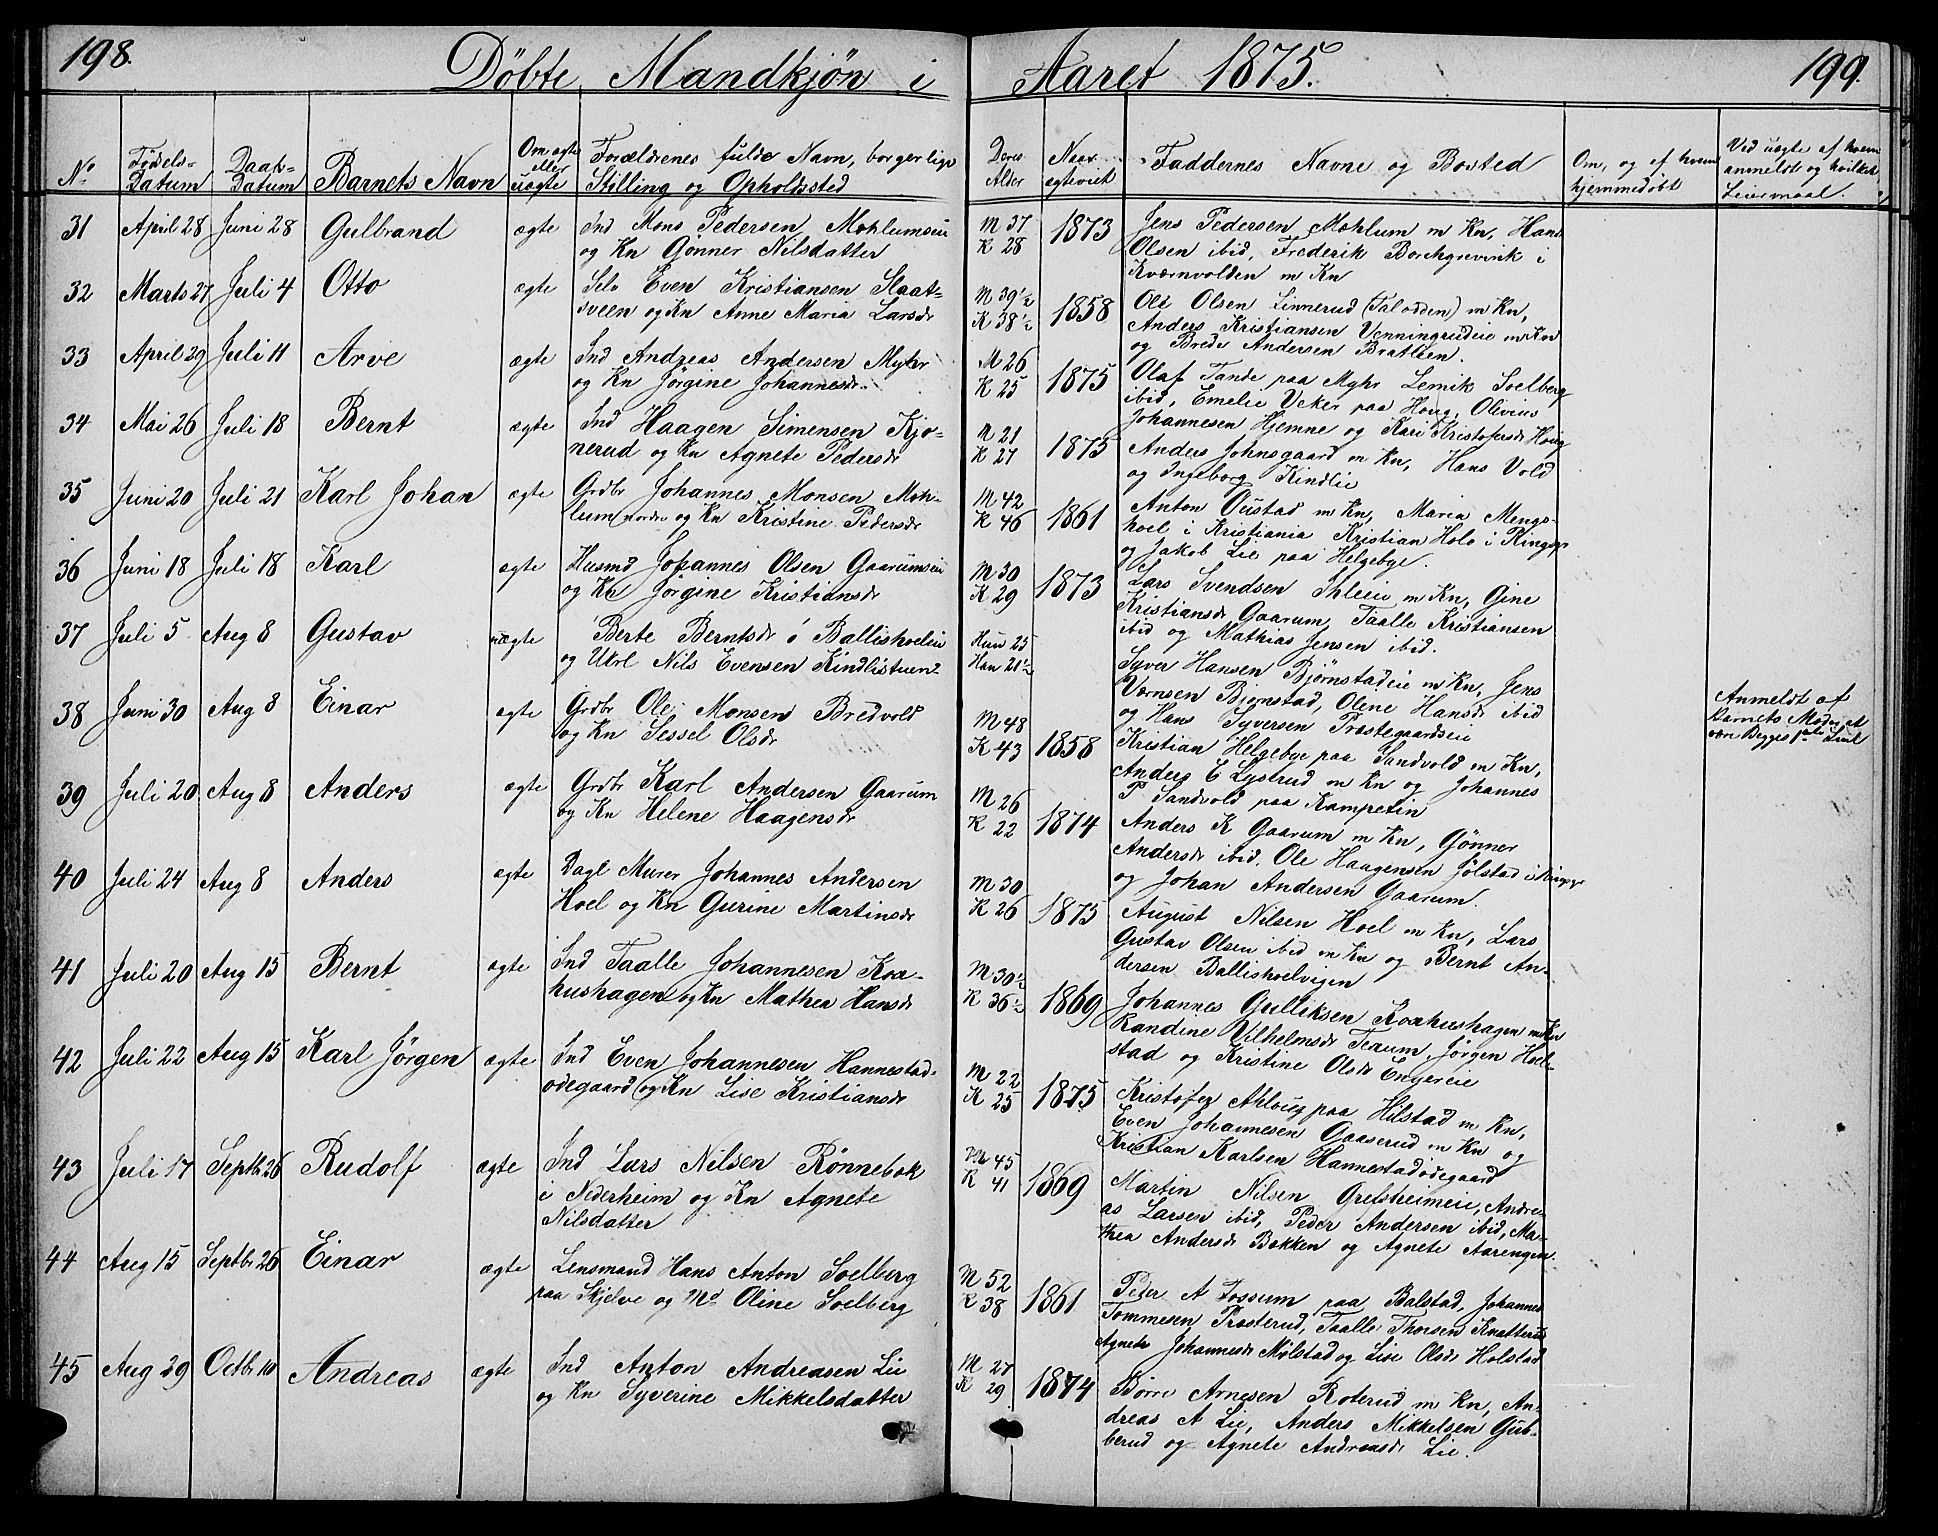 198.
Döbte Mandkjøn i
No
Fødsels=
Datum
Daab-
Datum
Barnets Navn
Om ægte
eller
uægte
Forældrenes fulde Navn, borgerlige
Stilling og Opholdssted
31 April 28 Juni 28 Gulbrand ægte Ind Mons Pedersen Mohlumseie
og Kn Gønner Nilsdatter
32 Marts 27 Juli 4 Otto ægte Selv Even Kristiansen Slaat-
sveen og Kn Anne Maria Larsdr
33 April 29 Juli 11 Arve ægte Ind Andreas Andersen Myhr
og Kn Jørgine Johannesdr
34 Mai 26 Juli 18 Bernt ægte Ind Haagen Simensen Kjo-
nerud og Kn Agnete Pedersdr
35 Juni 20 Juli 21 Karl Johan ægte Grdbr Johannes Monsen Moh-
lum nordre og Kn Kristine Pedersdr
36 Juni 18 Juli 18 Karl ægte Husmd Johannes Olsen Gaarumseie
og Kn Jörgine Kristiansdr
37 Juli 5 Aug 8 Gustav uægte Berte Berntsdr i Ballishoeleie
og Nils Evensen
38 Juni 30 Aug 8 Einar ægte Grdbr Ole Monsen Bredvold
og Kn Sessel Olsdr
39 Juli 20 Aug 8 Anders ægte Grdbr Karl Andersen Gaarum
og Kn Helene Haagensdr
40 Juli 24 Aug 8 Anders ægte Dagl Murer Johannes Andersen
Hoel og Kn Gurine Martinsdr
41 Juli 20 Aug 15 Bernt ægte Ind Taalle Johannesen Kra-
hushagen og Kn Mathea Hansdr
42 Juli 22 Aug 15 Karl Jörgen ægte Ind Even Johannesen Hannestad-
ødegaard og Kn Lise Kristiansdr
43 Juli 17 Septb 26 Rudolf ægte Ind Lars Nilsen Rönnebak
i Nederheim og Kn Agnete
Nilsdatter
44 Aug 15 Septbr 26 Einar ægte Lensmand Hans Anton Soelberg
paa Skjelve og Md Oline Soelberg
45 Aug 29 Octbr 10 Andreas ægte Ind Anton Andreasen Lie
og Kn Syverine Mikkelsdatter
Aaret 1875.
199.
Deres
Alder
Naar
ægteviet
Faddernes Navne og Bosted
Om, og af hvem
hjemmedøbt
Ved uægte af hvem
anmeldt og hvilket
Leiermaal.
M 37
K 28
1873
Jens Pedersen Mohlum m Kn, Hans
Olsen ibid, Frederik Borchgrevink i
Kværnvolden m Kn
M 39½
K 38½
1858
Ole Olsen Linnerud (Talodden) m Kn,
Anders Kristiansen Venningrudeie m Kn
og Brede Andersen Bratlien.
M 26
K 25
1875
Olaf Tande paa Myhr Lemik Soelberg
ibid, Emelie Veker paa Houg, Olivius
Johannesen Hjemne og Kari Kristofersdr Houg
M 21
K 27
1875
Anders Johnsgaard m Kn, Hans Vold
og Ingeborg Kindlie
M 42
K 46
1861
Anton Oustad m Kn, Maria Mengs-
hoel i Kristiania Kristian Holo i Ringsgr
og Jakob Lie paa Helgebye.
M 30
K 29
1873
Lars Svendsen Ihleie m Kn, Gine
Kristiansdr Gaarum, Taalle Kristiansen
ibid og Mathias Jensen ibid.
Hun 25
Han 21½
Syver Hansen Bjørnstadeie m Kn, Jens
Værnsen Bjørnstad, Olene Hansdr ibid
og Hans Syversen Præstegaardseie
Anmeldt af
Barnets Moder at
være Begges 1ste Leiel
M 48
K 43
1858
Kristian Helgebye paa Sandvold m Kn,
Anders E Lystrud m Kn og Johannes
P Sandvold paa Kampetin
M 26
K 22
1874
Anders K Gaarum m Kn, Gönner
Andersdr ibid, Ole Haagensen Jølstad i Ringsgr
og Johan Andersen Gaarum.
M 30
K 26
1875
August Nilsen Hoel m Kn, Lars
Gustav Olsen ibid m Kn og Bernt An-
dersen Ballishoelvigen
M 30½
K 36½
1869
Johannes Gulliksen Krahushagen m Kn
Randine Vilhelmsdr Teaum, Jörgen Hoel-
stad og Kristine Olsdr Engereie
M 22
K 25
1875
Kristofer Ahlbug paa Hilstad m Kn,
Even Johannesen Gaaserud m Kn og
Kristian Karlsen Hannestadödegaard
M 45
K 41
1869
Martin Nilsen Grefsheimeie, Andre-
as Larsen ibid, Peder Andersen ibid, Ma-
thea Andersdr Bakken og Agnete Aarengen.
M 52
K 38
1861
Peder A Fossum paa Balstad, Johannes
Tommesen Prosterud, Taalle Thorsen Knatterud
Agnete Johannesdr Mølstad og Lise Olsdr Holstad
M 27
K 29
1874
Børre Arnesen Roterud m Kn, An-
dreas A Lie, Anders Mikkelsen Gub-
berud og Agnete Andreasdr Lie.